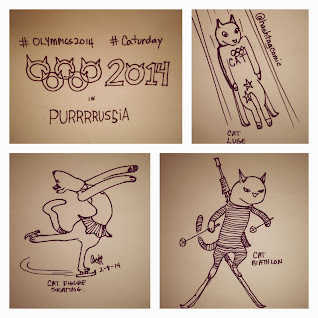 # OLYMPICS2014 # Caturday
2014
in
PURRRRUSSiA
@hashtagcomic
CAT
CAT
LUGE
2-8-14
CAT FIGURE
SKATING
CAT
BIATHLON